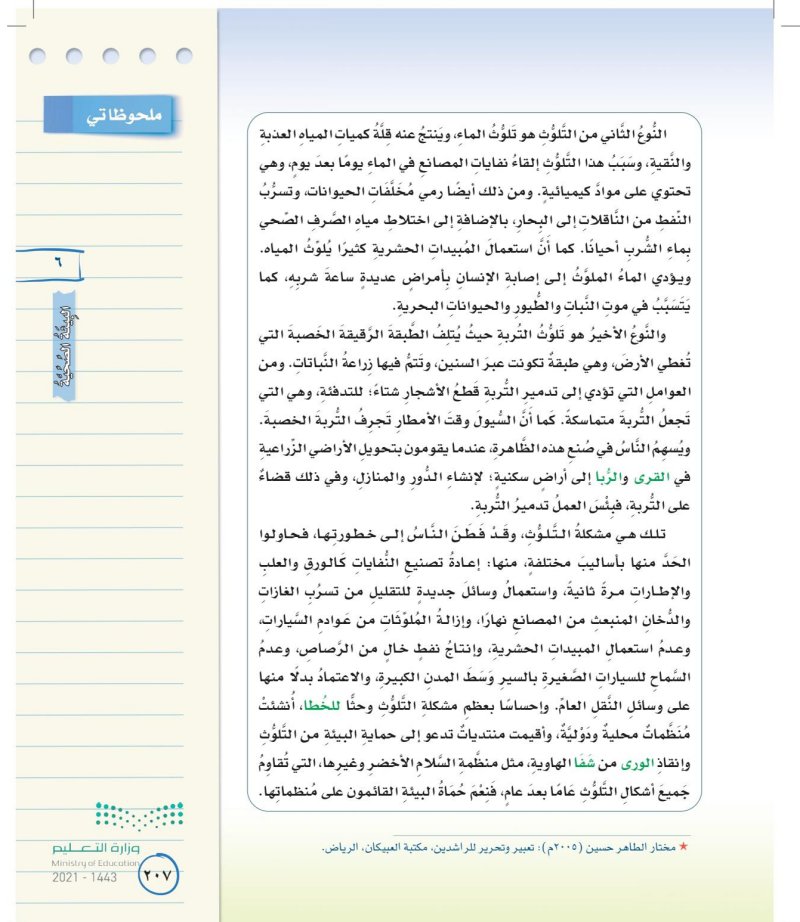 ملحوظاتي
٦
البيئة الصحية
النُّوعُ الثَّاني من التَّلوُّثِ هو تَلوُّثُ الماءِ، ويَنتجُ عنه قِلَّةُ كمياتِ المياهِ العذبةِ
والنَّقيةِ، وسَبَبُ هذا التَّلوُّثِ إلقاءُ نفاياتِ المصانعِ في الماءِ يومًا بعدَ يومٍ، وهي
تحتوي على موادَّ كيميائيةٍ. ومن ذلك أيضًا رمي مُخَلَّفَاتِ الحيواناتِ، وتسرُّبُ
النّفطِ من النَّاقلاتِ إلى البحارِ، بالإضافةِ إلى اختلاطِ مياهِ الصَّرفِ الصّحي
بماءِ الشُّربِ أحيانًا. كما أنَّ استعمالَ المُبيداتِ الحشريةِ كثيرًا يُلوّثُ المياهَ.
ويؤدي الماءُ الملوَّثُ إلى إصابةِ الإنسانِ بِأمراضٍ عديدةٍ ساعةَ شربِهِ، كما
يَتَسَبَّبُ في موتِ النَّباتِ والطُّيورِ والحيواناتِ البحريةِ.
والنَّوعُ الأخيرُ هو تَلوُّثُ التُّربةِ حيثُ يُتلِفُ الطَّبقةَ الرَّقيقةَ الخَصبةَ التي
تُغطي الأرضَ، وهي طبقةٌ تكونت عبرَ السنين، وتَتمُّ فيها زِراعةُ النَّباتاتِ. ومن
العواملِ التي تؤدي إلى تدميرِ التُّربةِ قَطعُ الأشجارِ شتاءً؛ للتدفئةِ، وهي التي
تَجعلُ التُّربةَ متماسكةً. كَما أنَّ السُّيولَ وقتَ الأمطارِ تَجرِفُ التُّربةَ الخصبةَ.
ويُسهِمُ النَّاسُ في صُنعِ هذه الظَّاهرةِ، عندما يقومون بتحويلِ الأراضي الزّراعيةِ
في القرى والرُّبا إلى أراضٍ سكنيةٍ؛ لإنشاءِ الدُّورِ والمنازلِ، وفي ذلك قضاءٌ
على التُّربةِ، فبِئْسَ العملُ تدميرُ التُّربةِ.
تلك هي مشكلةُ التَّلوُّثِ، وقَدْ فَطَنَ النَّاسُ إلى خطورتِها، فحاولوا
الحَدَّ منها بأساليبَ مختلفةٍ، منها: إعادةُ تصنيعِ النُّفاياتِ كَالورقِ والعلبِ
والإطاراتِ مرةً ثانيةً، واستعمالُ وسائلَ جديدةٍ للتقليلِ من تسرُّبِ الغازاتِ
والدُّخانِ المنبعثِ من المصانعِ نهارًا، وإزالةُ المُلوِّثاتِ من عَوادمِ السَّياراتِ،
وعدمُ استعمالِ المبيداتِ الحشريةِ، وإنتاجُ نفطٍ خالٍ من الرَّصاصِ، وعدمُ
السَّماحِ للسياراتِ الصَّغيرةِ بالسيرِ وَسَطَ المدنِ الكبيرةِ، والاعتمادُ بدلًا منها
على وسائلِ النَّقلِ العامِّ. وإحساسًا بعظمِ مشكلةِ التَّلوُّثِ وحثًّا للخُطا، أُنشئتْ
مُنَظَّماتٌ محليةٌ ودَوْليَّةٌ، وأقيمت منتدياتٌ تدعو إلى حمايةِ البيئةِ من التَّلوُّثِ
وإنقاذِ الورى من شَفَا الهاويةِ، مثل منظَّمةِ السَّلامِ الأخضرِ وغيرِها، التي تُقاوِمُ
جَميعَ أشكالِ التَّلوُّثِ عَامًا بعدَ عامٍ، فَنِعْمَ حُمَاةُ البيئةِ القائمون على مُنظماتِها.
★ مختار الطاهر حسين (٢٠٠٥م): تعبير وتحرير للراشدين، مكتبة العبيكان، الرياض.
وزارة التعليم
Ministry of Education
2021 - 1443
٢٠٧